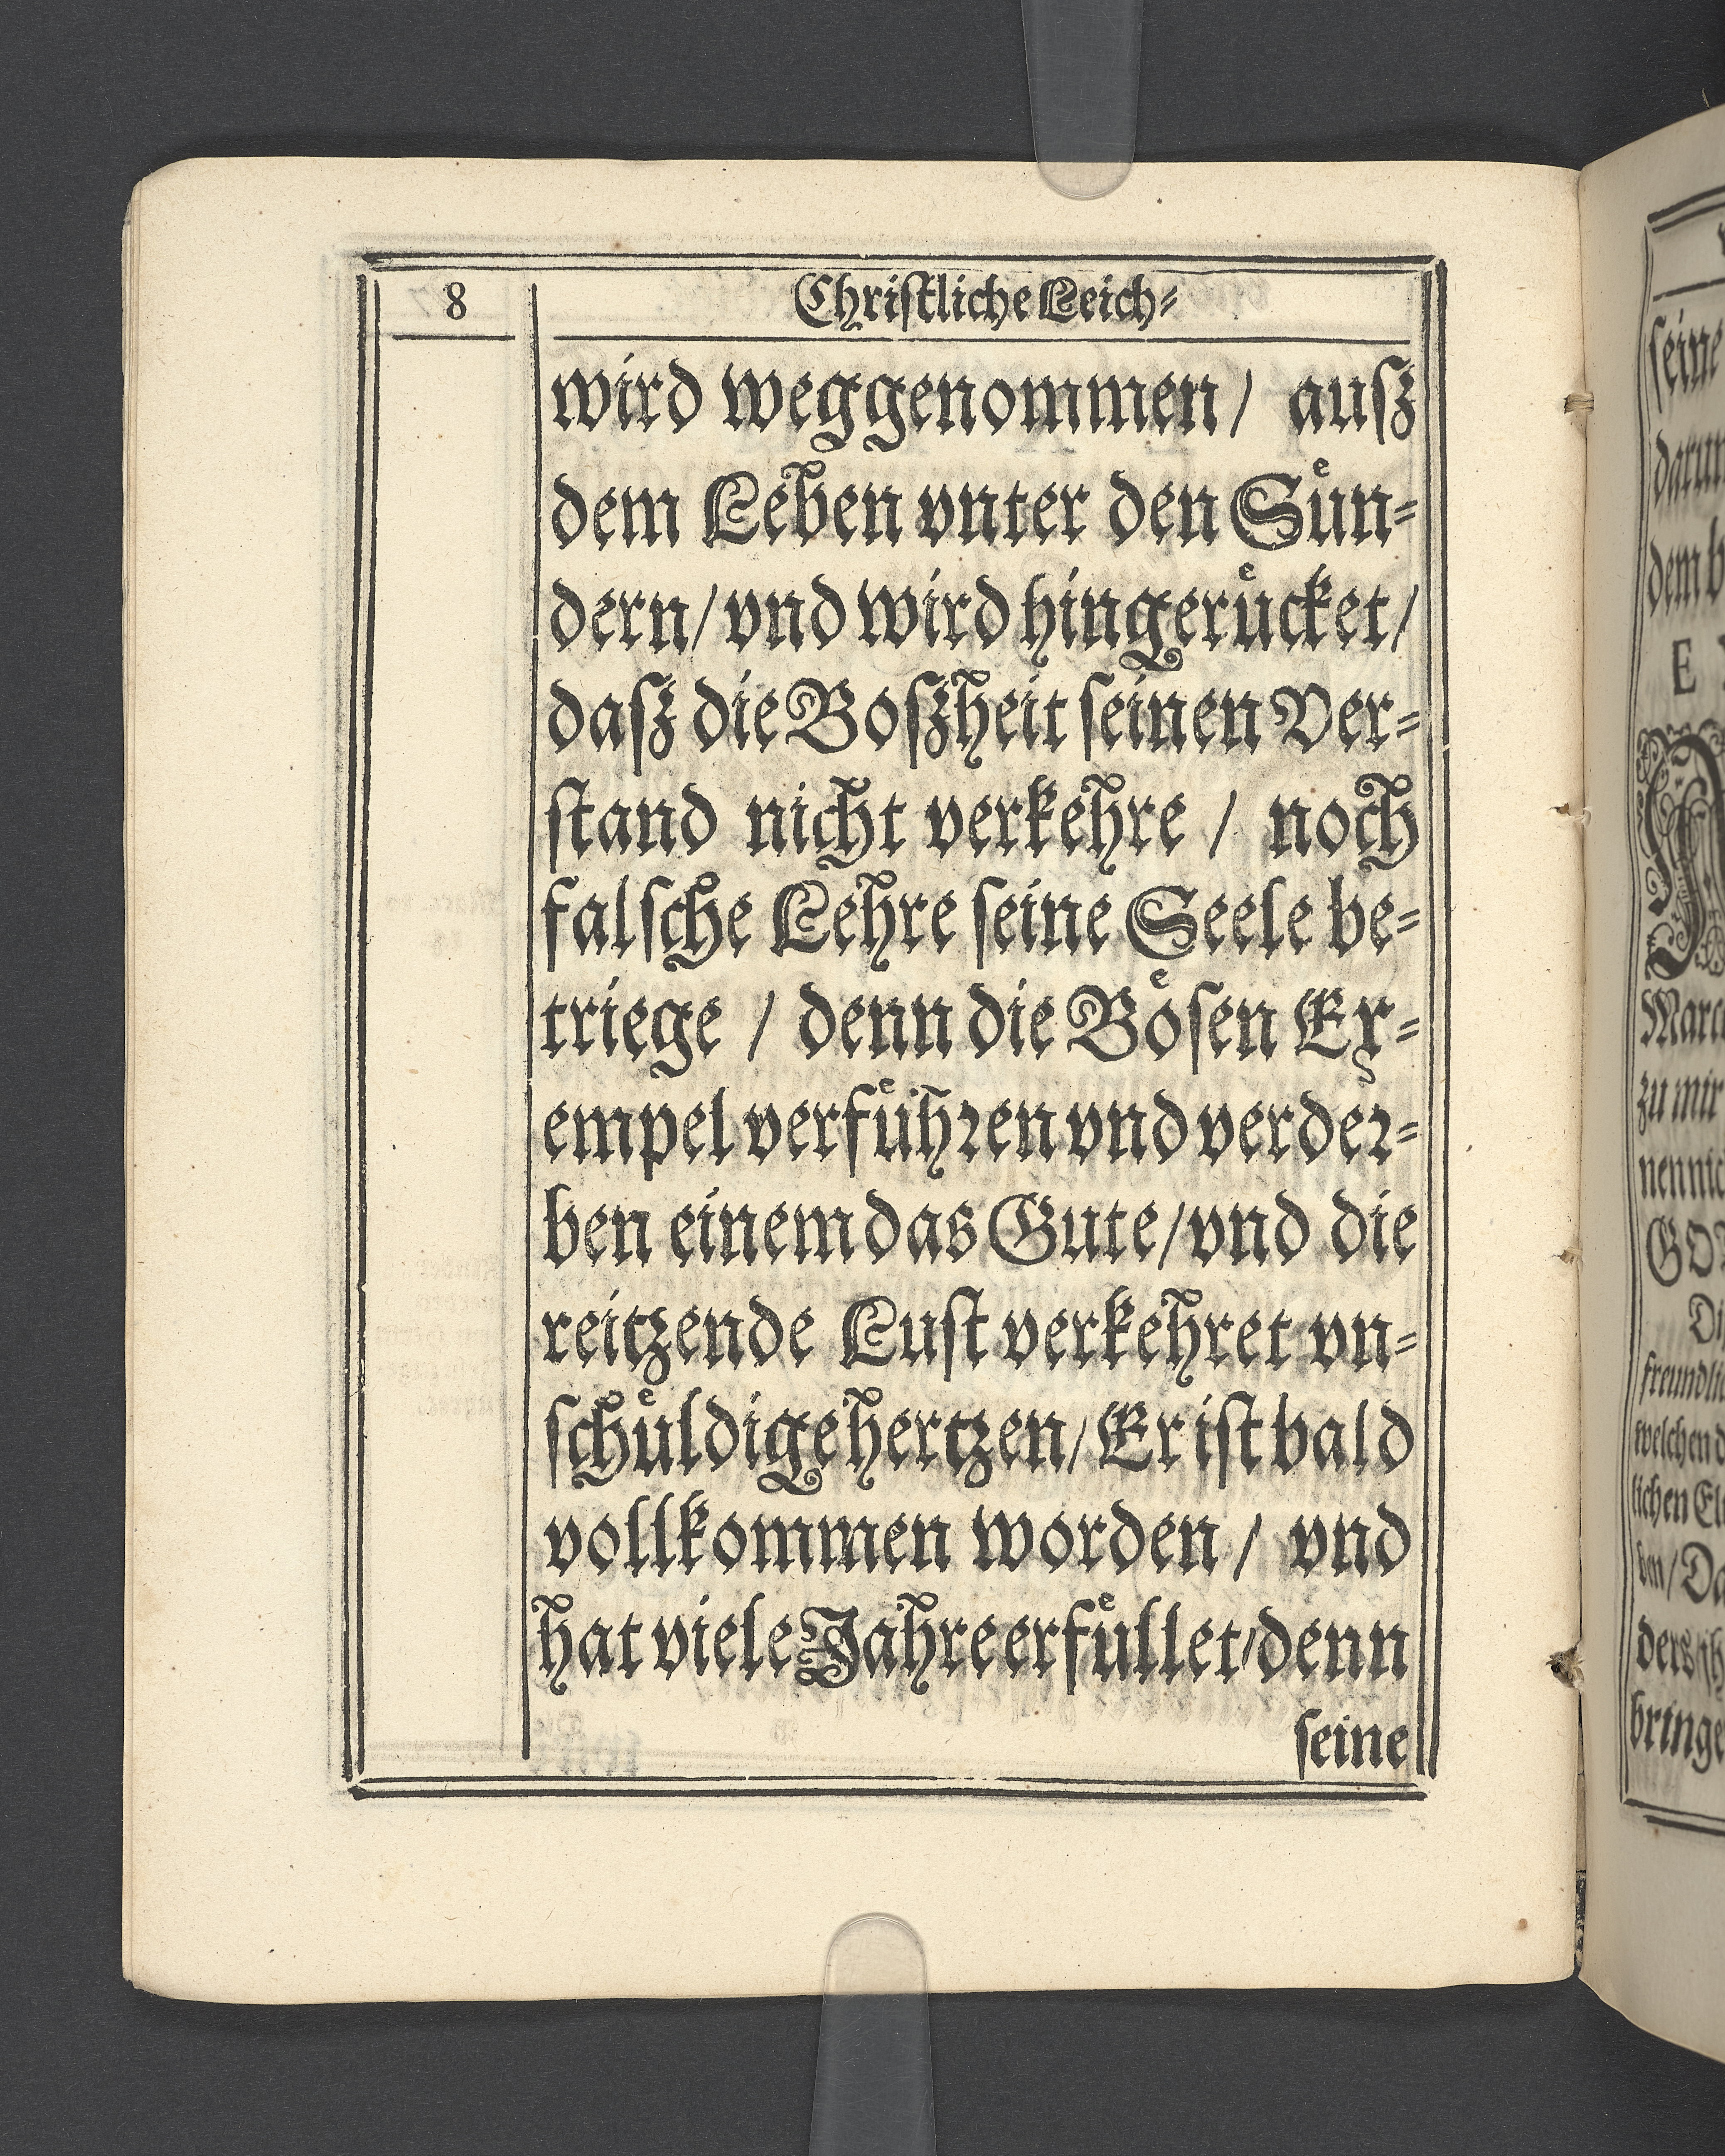 8
Christliche Leich⸗
wird weggenommen/ auſz
dem Leben vnter den Suͤn⸗
dern/vnd wird hingeruͤcket/
daſz die Boſzheit ſeinen Ver⸗
ſtand nicht verkehre / noch
falſche Lehre ſeine Seele be⸗
triege / denn die Boͤſen Ex⸗
empel verfuͤhꝛen vnd verdeꝛ⸗
ben einem das Gute/vnd die
reitzende Luſt verkehret vn⸗
ſchuͤldige hertzen/Er iſt bald
vollkommen worden/ vnd
hat viele Jahre erfuͤllet/denn
ſeine
ſeine
dem
E
Marc
zu mir
nen nic
freundli
welchen d
lichen El
ben/Da
ders/jh
bringe